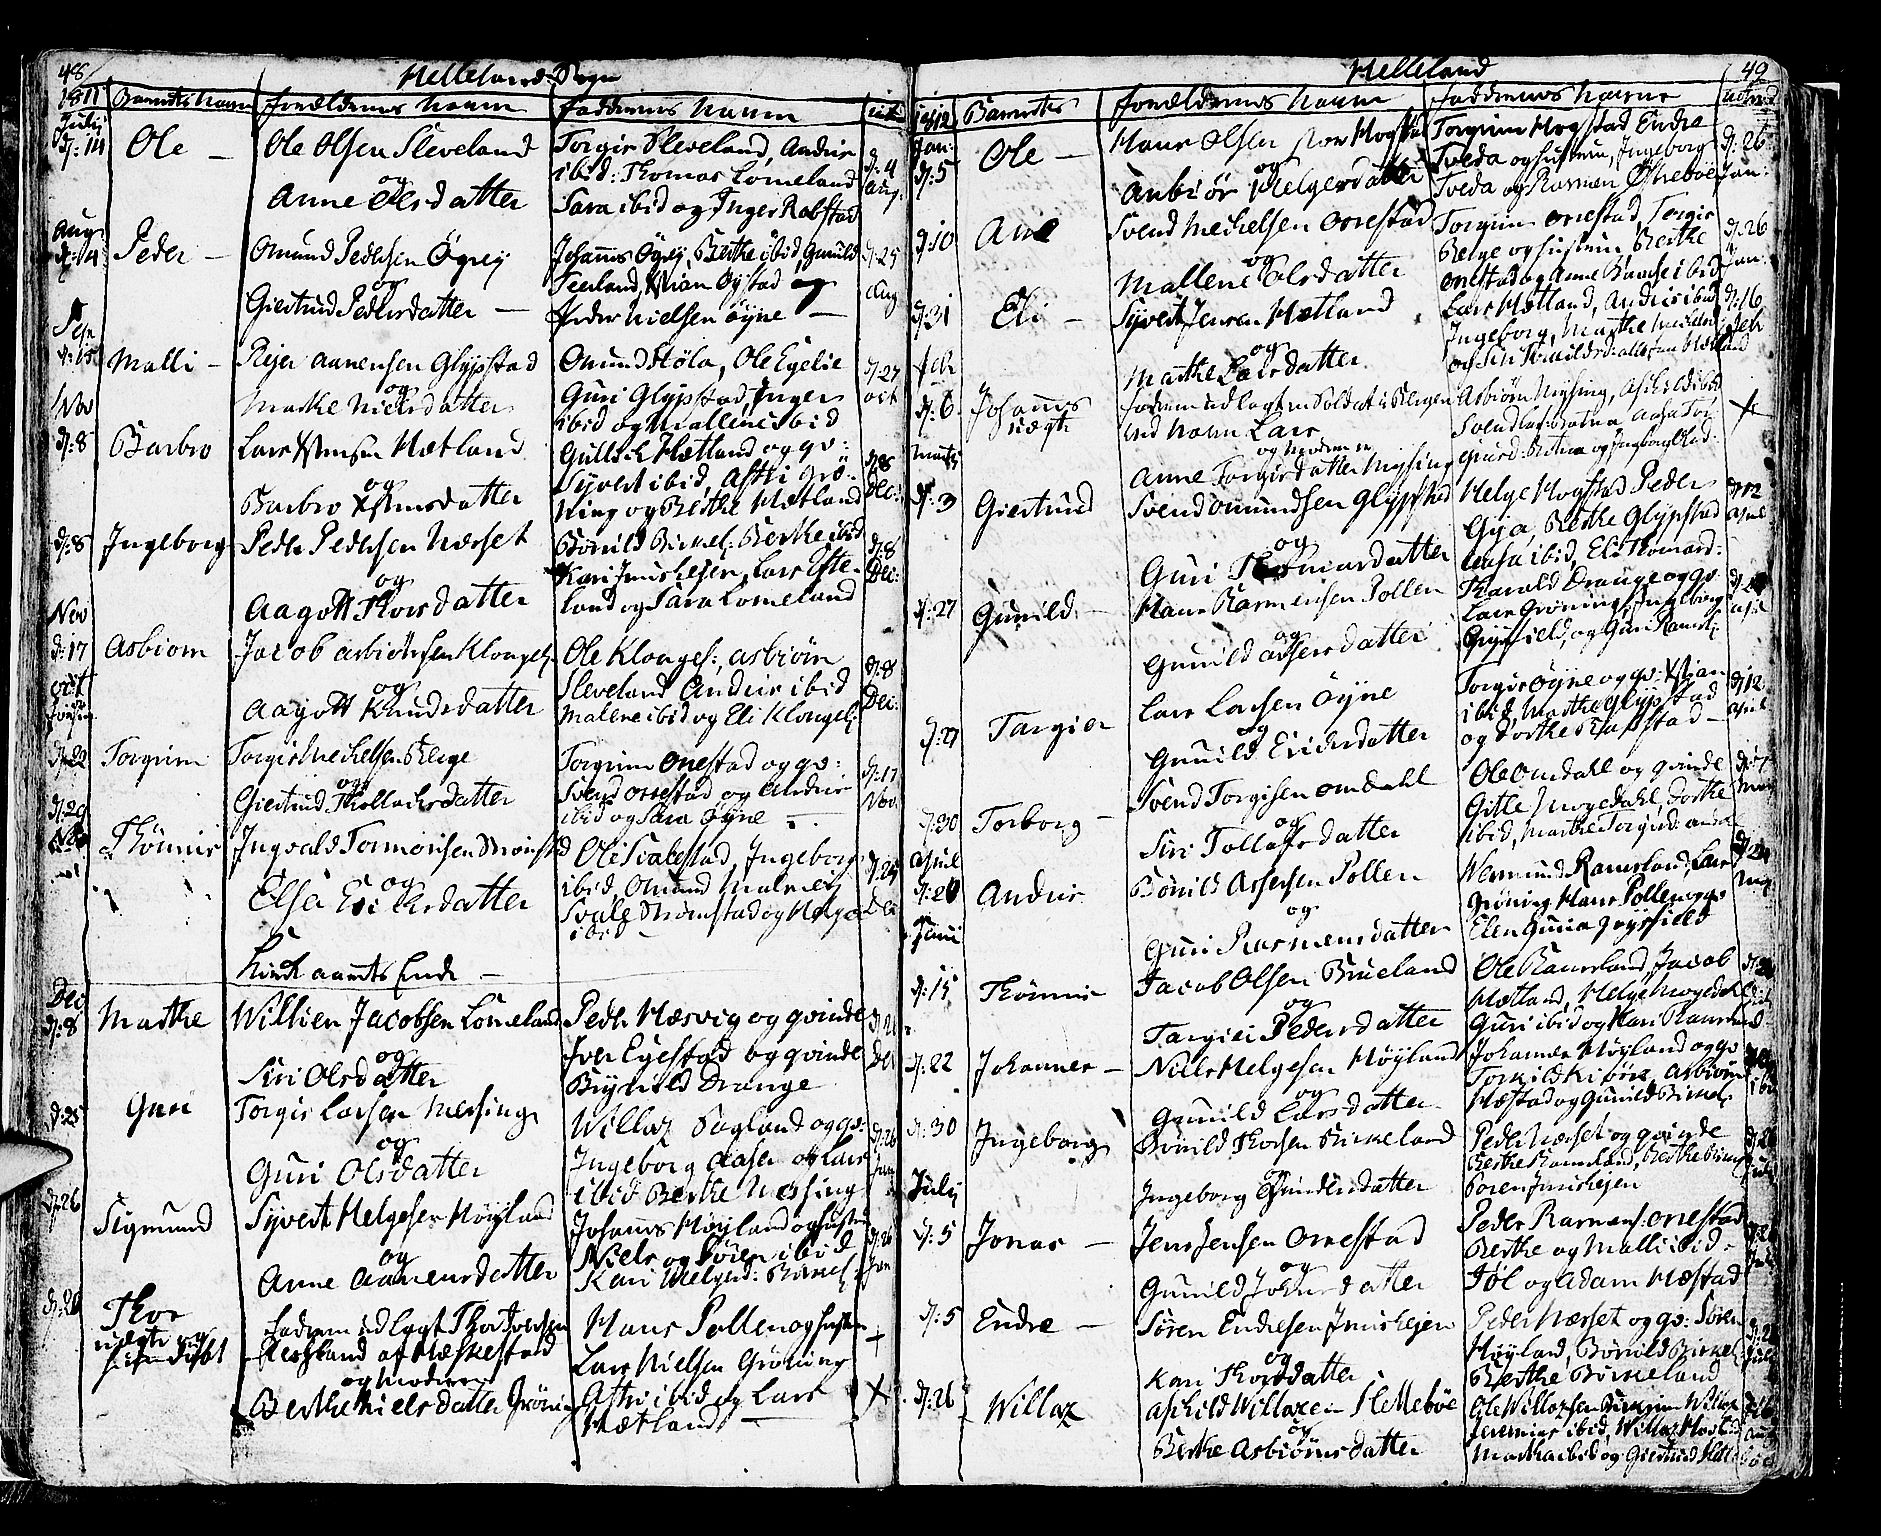 48
Hellelands Sogn
1811 Barnets Navn forældrenes Navn faddrenes Navn
July
d: 14 Ole — Ole Olsen Sleveland
og
Anne Olsdatter
Torgir Sleveland, Andrir
ibid: Thomas Lomeland
Sara ibid og Inger Robstad
d: 4
Aug:
Aug
d: 4 Peder — Omund Pedersen Øgrey
og
Giertrud Pedersdatter —
Johanns Øgrey, Berthe ibid, Gunild
Seeland, Xstian Øystad og
Peder Nielsen öyne —
d: 25
Aug
Sep
d: 15 Malli — Rejer Aanensen Glypstad
og
Marthe Nielsdatter
Omund Stöla, Ole Egelie
Guri Glypstad, Inger
ibid og Mallene ibid
d: 27
oct
Nov
d: 8 Barbro Lars Xstensen Hætland
og
Barbro Xstensdatter
Hætland og qv:
Syvert ibid, Astri Grö-
ning og Berthe Hætland
d: 8
Dec:
d: 8 Ingeborg Peder Pedersen Nærset
og
Aagott Thorsdatter
Bönild Birkel: Berthe ibid
Kari Jmishejen, Lars Efte-
land og Sara Lomeland
d: 8
Dec:
Nov
d: 17 Asbiørn Jacob Asbiörnsen Klungel:
og
Aagott Knudsdatter
Ole Klongel:, Asbiörn
Sleveland Andrir ibid
Malene ibid og Eli Klongel:
d: 8
Dec:
d: 22 Torgrim Torgir Mechelsen Berge
og
Giertrud Thollachsdatter
Torgrim Onestad og qv:
Svend Onestad og Andrir
ibid og Sara Öyne —
d: 17
Nov
d: 29
Thönnis Ingvald Tormonsen Strömstad
og
Elsa Erichsdatter
Oli Svalestad, Ingeborg
ibid, Omund Malmei
Svale Strömstad og Helge
ibid —
d: 25
Dec
Kirck aarets Ende —
Dec
d: 8 Marthe Willien Jacobsen Lomeland
og
Siri Olsdatter
Peder Hæsvig og qvinde
Iver Egestad og qvinde
Brynild Drange
d: 26
Dec
d: 25 Guri Torgir Larsen Mersing
og
Guri Olsdatter
Willaz Sagland og qv:
Ingeborg Aasen og Lars
ibid Berthe Mersing
d: 26
Jan
d: 26 Sigmund Syvert Helgesen Höyland
og
Anne Aanensdatter
Johanns Höyland og hustru
Niels og Sören ibid
Kari Helgesd: Birkel:
d: 26
Jan
d: 26 Thor
uægte og
Fadren udlagt Thor Iversen
Reesland af Heskestad
og Moderen
Berthe Nielsdatter Gröning
Hans Pollen og hustru
Lars Nielsen Gröning
Astri ibid og Lars
Hætland —
+
X
Helleland
49
1812 Barnets forældrenes Navn faddrenes Navne
Jan:
d: 5 Ole — Hans Olsen stor Hogstad
og
Anbiör Helgesdatter
Torgrim Hogstad Endre
Tveda og hustru, Ingeborg
Tveda og Rasmus Östreböe
d: 26
Jan:
d: 10 Ane Svend Mechelsen Onestad
og
Mallene Olsdatter
Torgrim Onestad, Torgir
Berge og hustru Berthe
Onestad og Anne ibid
d: 26
Jan:
d: 31 Eli — Syvert Jensen Hætland
og
Marthe Larsdatter
Lars Hætland, Andris ibid
Ingeborg, Marthe
d: 16
feb
feb
d: 6 Johanns
uægte
fadren udlagt en Soldat i Bergen
ved Navn Lars
og Moderen
Anne Torgirsdatter Mysing
Asbiörn Mysing, Aschild ibid
X
Marts
d: 3 Giertrud Svend Omundsen Glypstad
og
Guri Thomasdatter
Helge Hogstad Peder
Gya, Berthe Glypstad
Aasa ibid, Eli Thomasd:
d: 12
April
d: 27 Gunild — Hans Rasmusen Pollen
og
Gunild Assersdatter
Harald Drange og qv:
Lars Gröning, Ingeborg
Gryssield, og Guri Ramsl:
April
d: 27 Targier Lars Larsen Öyne
og
Gunild Erichsdatter
Torgir Öyne og qv: Xstian
ibid, Marthe Glypstad
og Dorthe Rapstad —
d: 12
April
d: 30 Torborg — Svend Torgisen Omdahl
og
Siri Tollafsdatter
Ole Omdahl og qvinde
Gitle Mogedahl, Dorthe
ibid, Marthe Torgirsd:
d: 7
May
April
d: 20 Andris Bönild Assersen Pollen
og
Guri Rasmusdatter
Wermund Ramsland, Lars
Gröning Hans Pollen og qv:
Elen Guria Gryssield
May
Juni
d: 15 Thönnis Jacob Olsen Brueland
og
Targiei Pedersdatter
Ole Ramsland, Jacob
Hætland, Helge Mogedal
Guri ibid og Kari Ramsland
d: 22 Johannes — Niels Helgesen Höyland
og
Gunild Larsdatter
Johannes Höyland og qv:
Torkild Kiörr, Asbiörn
Hæstad og Gunild Birkel:
d: 30 Ingeborg Bönild Thorsen Birkeland
og
Ingeborg Gundersdatter
Peder Nærset og qvinde
Berthe Ramsland, Berthe
Soren Jmishejen
July
d: 5 Jonas — Jens Jensen Onestad
og
Gunild Jonsdatter
Peder Rasmus: Onestad
Berthe og Malli ibid —
Jöl og Adam Hæstad
d: 5 Endre — Sören Endresen Jmishejen
og
Kari Thorsdatter
Peder Nærset og qv: Sören
Höyland, Bönild Birkel:
Berthe Birkeland
d: 26 Willaz Aschild Willazen Slettebøe
og
Berthe Asbiörnsdatter
Ole Willazsen
Jeremias ibid, Willaz
Martha ibid og Giertrud Slette
böe